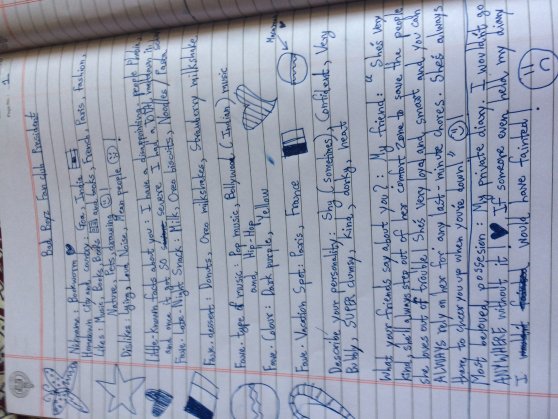 1
Bad Boyz Fan club President
Nickname: Bookworm
Hometown city and country: Goa, India
Likes: Music, Books, Books and books, French, Paris, Fashion,
Nature, Pets, drawing
Dislikes: Lying, and Noise, Mean people
Little-Known facts about you: I have a disappointing people
and once it got so severe I had a
Fave. Late-Night Snack: Milk, Oreo biscuits, Noodles/Pasta
Fave. dessert: Donuts, Oreo milkshakes, Strawberry milkshake
Fave. type of music: Pop music, Bollywood (Indian) music
and Hip Hop
Fave. Colour: Dark purple, Yellow
Fave. Vacation Spot: Paris, France
Describe your personality: Shy (sometimes), Confident, Very
Bubbly, SUPER clumsy, kind, dorky, neat
What your friends say about you?: My friend: "She's very
kind, she'll always step out of her comfort zone to save the people
she loves out of trouble. She's very loyal and smart and you can
ALWAYS rely on her for any last-minute chores. She's always
there to cheer you up when you're down"
Most beloved possesion: My private diary. I wouldn't go
ANYWHERE without it. If someone even held my diary
I would have fainted!